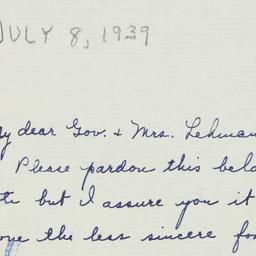 JULY 8, 1939
My dear Gov. & Mrs. Lehman
Please pardon this bela
but I assure you it
the less sincere for